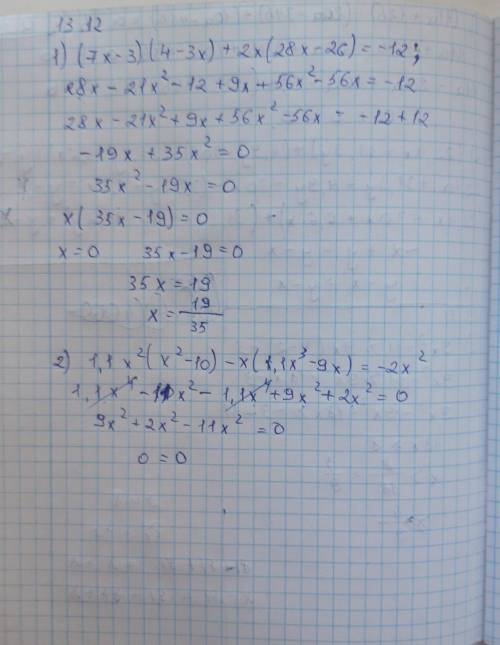 13.12
1) (7x-3)(4-3x)+2x(28x-26)=-12;
28x-21x²-12+9x+56x²-56x=-12
28x-21x²+9x+56x²-56x=-12+12
-19x+35x²=0
35x²-19x=0
x(35x-19)=0
x=0 35x-19=0
35x=19
x=19/35
2) 1,1x²(x²-10)-x(1,1x³-9x)=-2x²
1,1x⁴-11x²-1,1x⁴+9x²+2x²=0
9x²+2x²-11x²=0
0=0